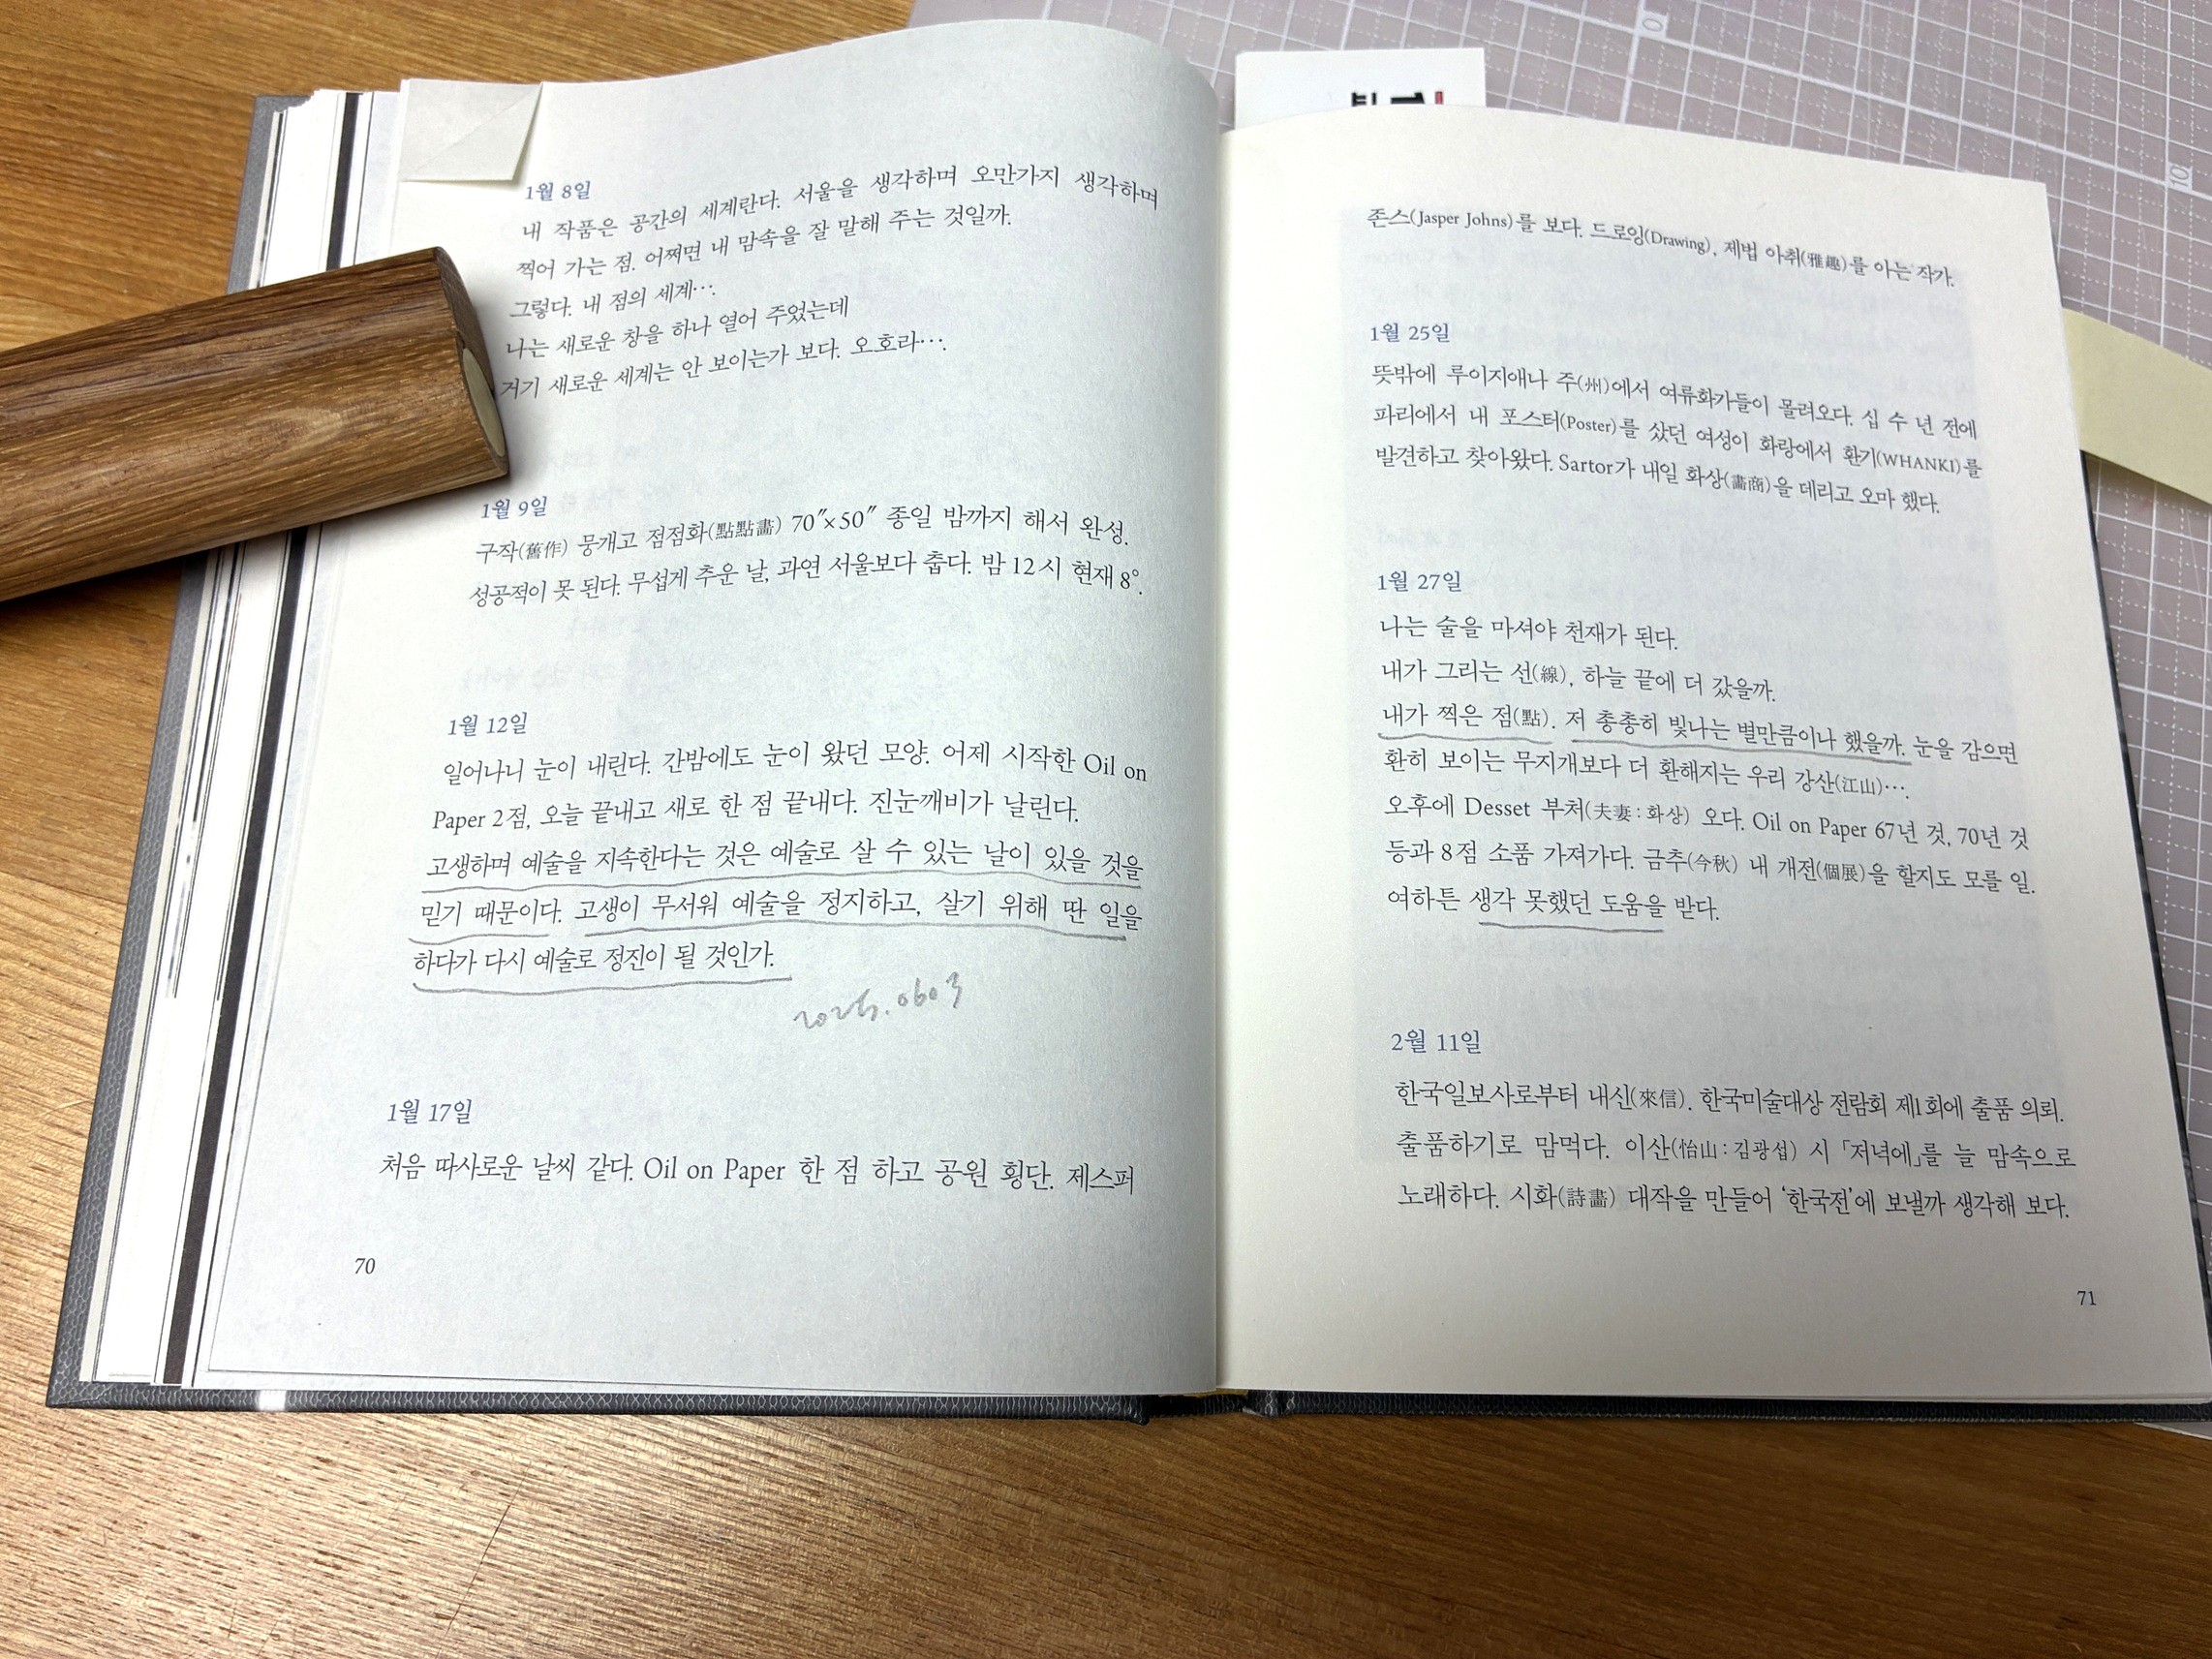 1월 8일
내 작품은 공간의 세계란다. 서울을 생각하며 오만가지 생각하며
찍어 가는 점. 어쩌면 내 맘속을 잘 말해 주는 것일까.
그렇다. 내 점의 세계….
나는 새로운 창을 하나 열어 주었는데
거기 새로운 세계는 안 보이는가 보다. 오호라….
1월 9일
구작(舊作) 뭉개고 점점화(點點畵) 70″×50″ 종일 밤까지 해서 완성.
성공적이 못 된다. 무섭게 추운 날, 과연 서울보다 춥다. 밤 12시 현재 8°.
1월 12일
일어나니 눈이 내린다. 간밤에도 눈이 왔던 모양. 어제 시작한 Oil on
Paper 2점, 오늘 끝내고 새로 한 점 끝내다. 진눈깨비가 날린다.
고생하며 예술을 지속한다는 것은 예술로 살 수 있는 날이 있을 것을
믿기 때문이다. 고생이 무서워 예술을 정지하고, 살기 위해 딴 일을
하다가 다시 예술로 정진이 될 것인가.
2025.0603
1월 17일
처음 따사로운 날씨 같다. Oil on Paper 한 점 하고 공원 횡단. 제스퍼
70
존스(Jasper Johns)를 보다. 드로잉(Drawing), 제법 아취(雅趣)를 아는 작가.
1월 25일
뜻밖에 루이지애나 주(州)에서 여류화가들이 몰려오다. 십 수 년 전에
파리에서 내 포스터(Poster)를 샀던 여성이 화랑에서 환기(WHANKI)를
발견하고 찾아왔다. Sartor가 내일 화상(畵商)을 데리고 오마 했다.
1월 27일
나는 술을 마셔야 천재가 된다.
내가 그리는 선(線), 하늘 끝에 더 갔을까.
내가 찍은 점(點). 저 총총히 빛나는 별만큼이나 했을까. 눈을 감으면
환히 보이는 무지개보다 더 환해지는 우리 강산(江山)….
오후에 Desset 부처(夫妻:화상) 오다. Oil on Paper 67년 것, 70년 것
등과 8점 소품 가져가다. 금추(今秋) 내 개전(個展)을 할지도 모를 일.
여하튼 생각 못했던 도움을 받다.
2월 11일
한국일보사로부터 내신(來信). 한국미술대상 전람회 제1회에 출품 의뢰.
출품하기로 맘먹다. 이산(怡山:김광섭) 시 「저녁에」를 늘 맘속으로
노래하다. 시화(詩畵) 대작을 만들어 ‘한국전’에 보낼까 생각해 보다.
71